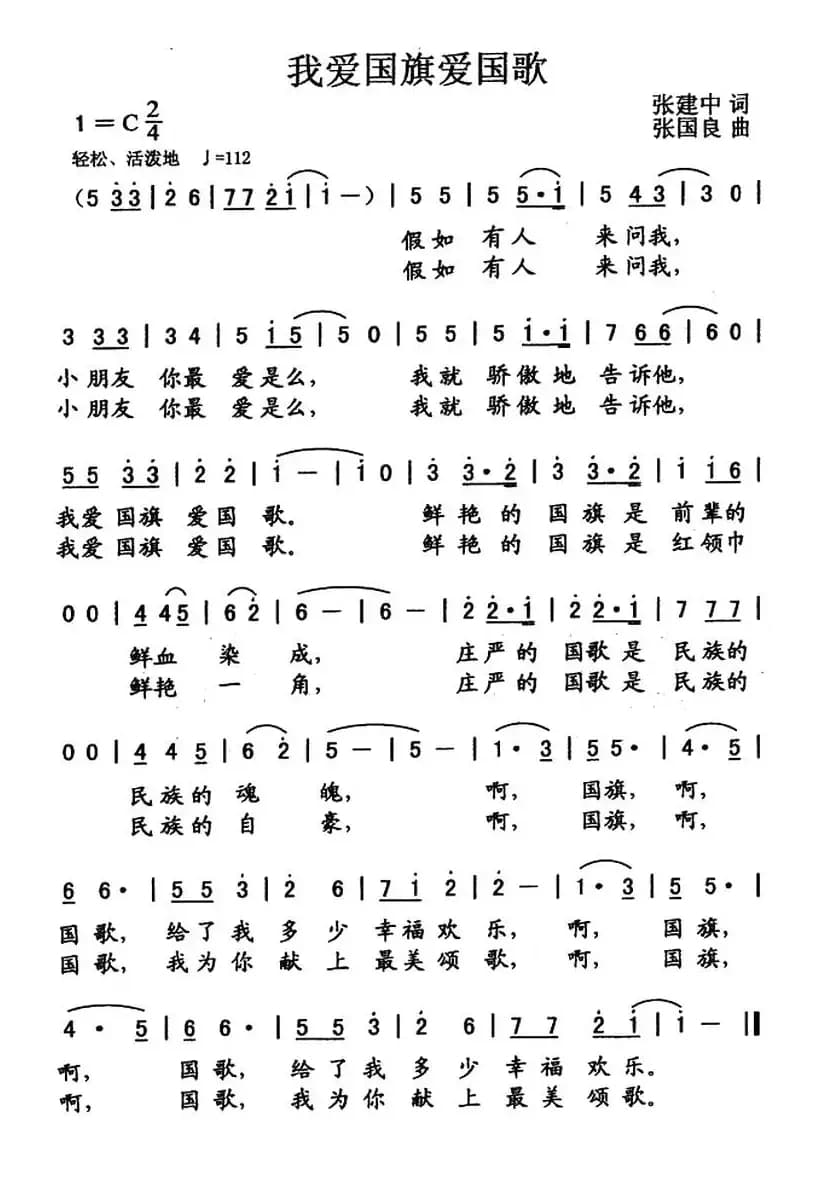 我爱国旗爱国歌
1=C 2/4
张建中 词
张国良 曲
轻松、活泼地 ♩=112
(5 3̇3̇ | 2̇ 6 | 77 2̇1̇ | 1̇ —) | 5 5 | 5 5·1̇ | 5 43 | 3 0 |
假如 有人 来问我,
假如 有人 来问我,
3 33 | 3 4 | 5 1̇5 | 5 0 | 5 5 | 5 1̇·1̇ | 7 66 | 6 0 |
小朋友 你最 爱是么, 我就 骄傲地 告诉他,
小朋友 你最 爱是么, 我就 骄傲地 告诉他,
55 3̇3̇ | 2̇ 2̇ | 1̇ — | 1̇ 0 | 3̇ 3̇·2̇ | 3̇ 3̇·2̇ | 1̇ 1̇6 |
我爱国旗 爱国 歌。 鲜艳的 国旗是 前辈的
我爱国旗 爱国 歌。 鲜艳的 国旗是 红领巾
0 0 | 4 45 | 6 2̇ | 6 — | 6 — | 2̇ 2̇·1̇ | 2̇ 2̇·1̇ | 7 77 |
鲜血 染 成, 庄严的 国歌是 民族的
鲜艳 一 角, 庄严的 国歌是 民族的
0 0 | 4 4 5 | 6 2̇ | 5 — | 5 — | 1̇· 3̇ | 5 5· | 4· 5 |
民族的 魂 魄, 啊, 国旗, 啊,
民族的 自 豪, 啊, 国旗, 啊,
6 6· | 5 5 3̇ | 2̇ 6 | 7 1̇ 2̇ | 2̇ — | 1̇· 3 | 5 5· |
国歌, 给了我 多少 幸福欢 乐, 啊, 国旗,
国歌, 我为你 献上 最美颂 歌, 啊, 国旗,
4 · 5 | 6 6· | 5 5 3̇ | 2̇ 6 | 7 7 2̇ 1̇ | 1̇ — ‖
啊, 国歌, 给了我 多少 幸福 欢乐。
啊, 国歌, 我为你 献上 最美 颂歌。